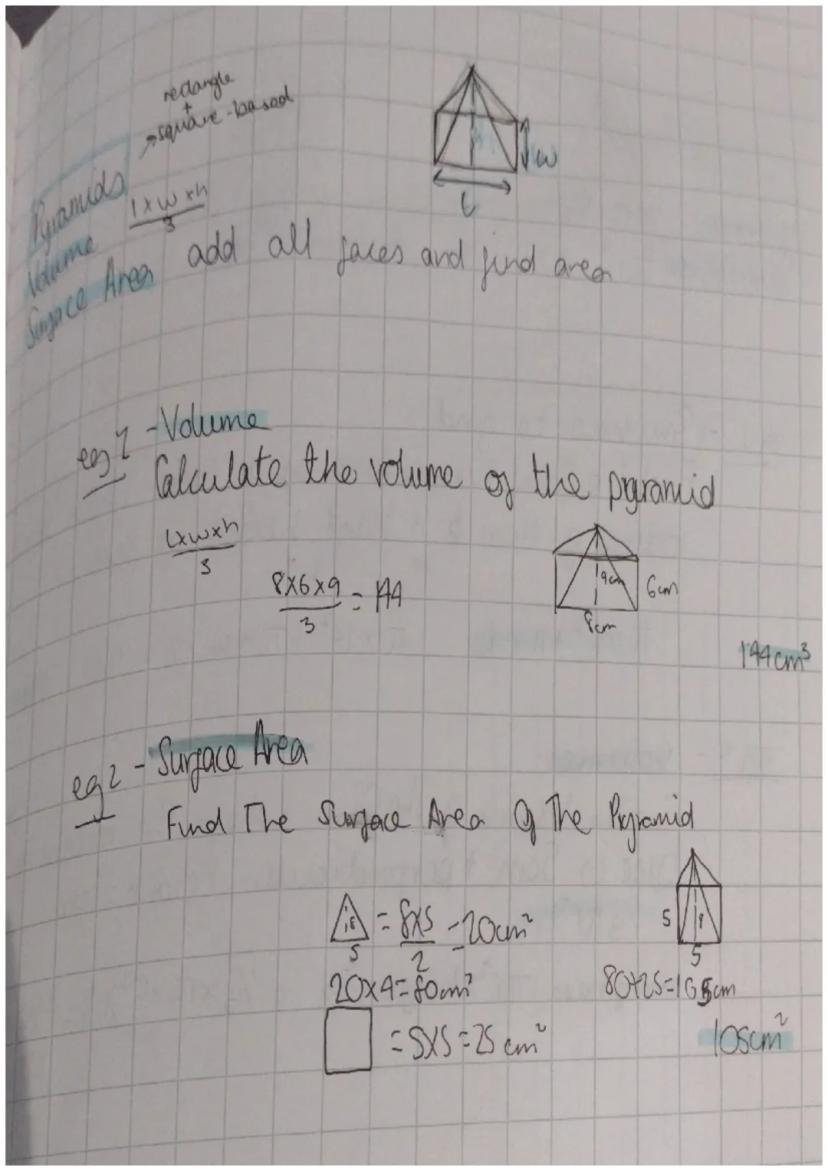 rectangle
+
→square-based
Pyramids
w
l
Volume l×w×h
3
Surface Area add all faces and find area
eg 1 - Volume
Calculate the volume of the pyramid
l×w×h
3
8×6×9 = 144
3
9cm
6cm
8cm
144cm³
eg 2 - Surface Area
Find The Surface Area Of The Pyramid
8 = 8×5 = 20cm²
5 2
5 8
5
20×4=80cm²
80+25=105cm
= 5×5=25 cm²
105cm²